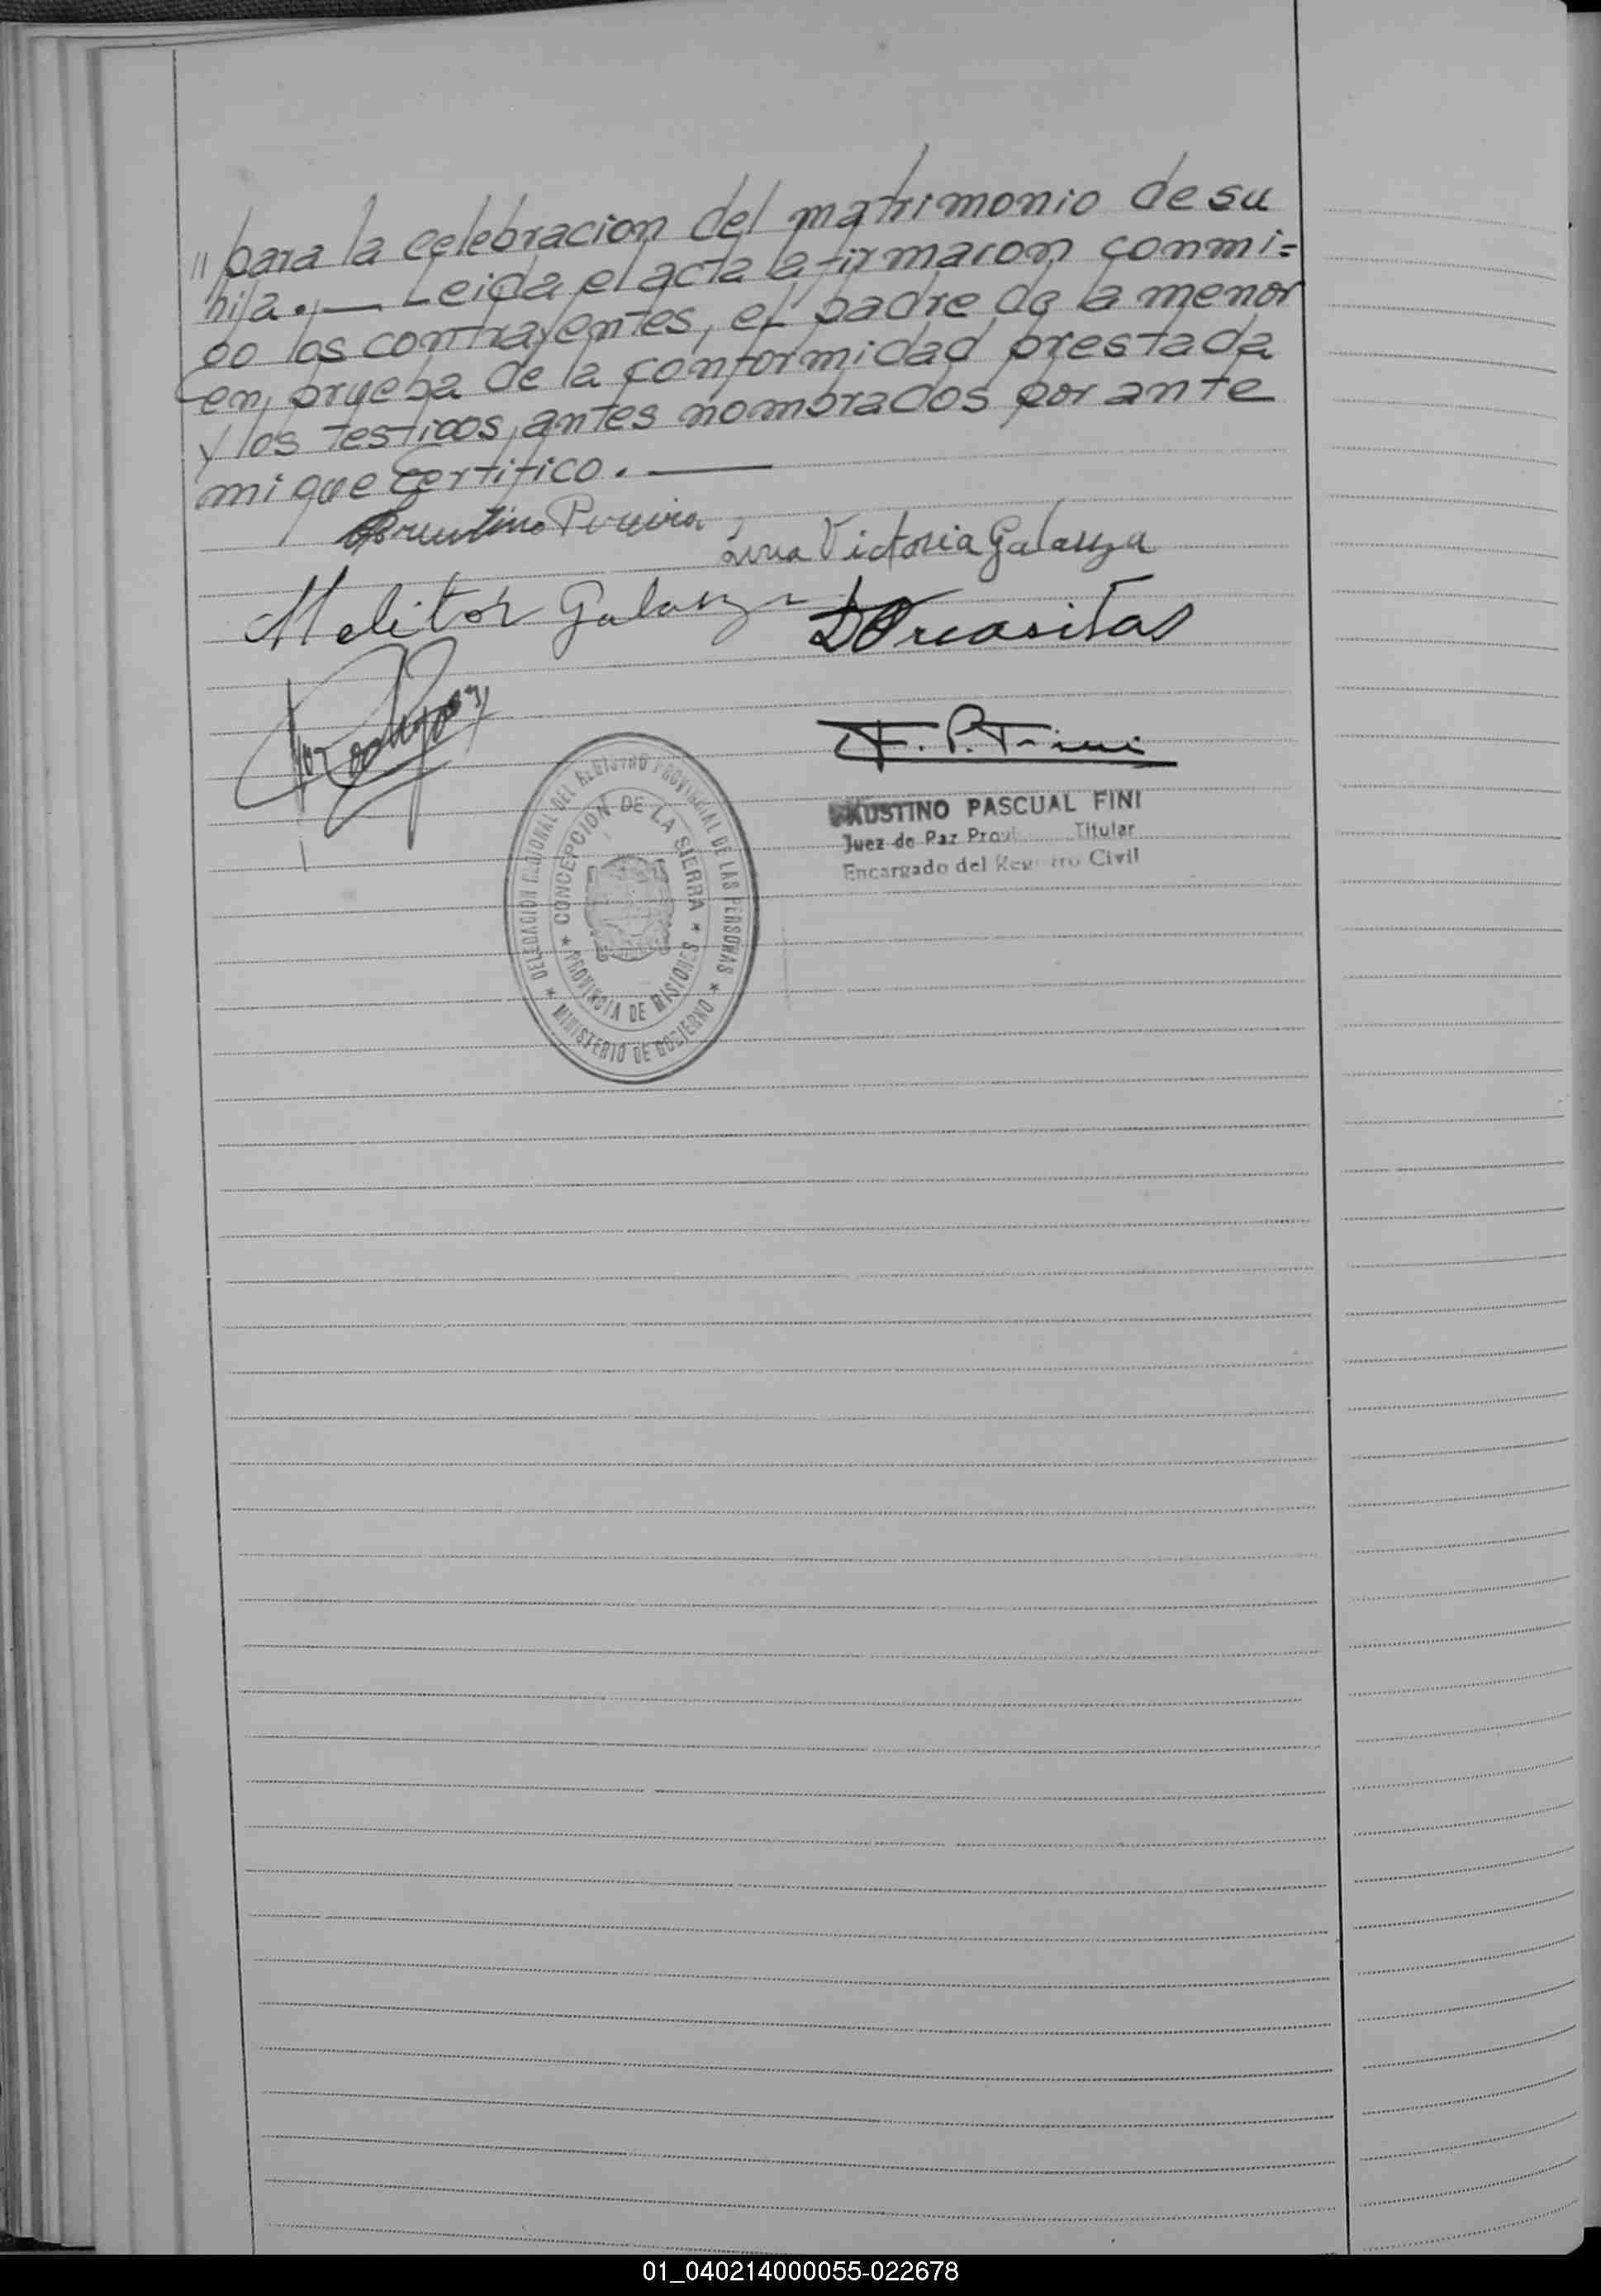 " para la celebracion del matrimonio de su
hija.— Leida el acta la firmaron conmi=
go los contrayentes, el padre de la menor
en prueba de la conformidad prestada
y los testigos antes nombrados por ante
mi que Certifico.—
Pereira
Victoria Galarza
Melitor Galarza
F. P. Fini
FAUSTINO PASCUAL FINI
Juez de Paz Titular
Encargado del Registro Civil
DELEGACION REGIONAL DEL REGISTRO PROVINCIAL DE LAS PERSONAS
★ MINISTERIO DE GOBIERNO ★
CONCEPCION DE LA SIERRA
★ PROVINCIA DE MISIONES ★
01_040214000055-022678